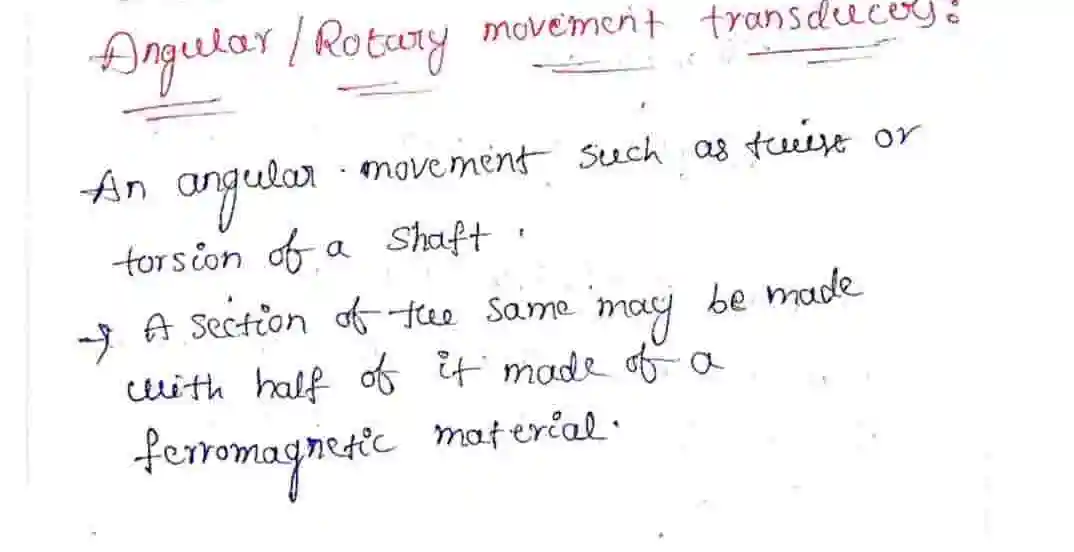 Angular / Rotary movement transducers:
An angular movement such as twist or
torsion of a shaft.
→ A section of the same may be made
with half of it made of a
ferromagnetic material.